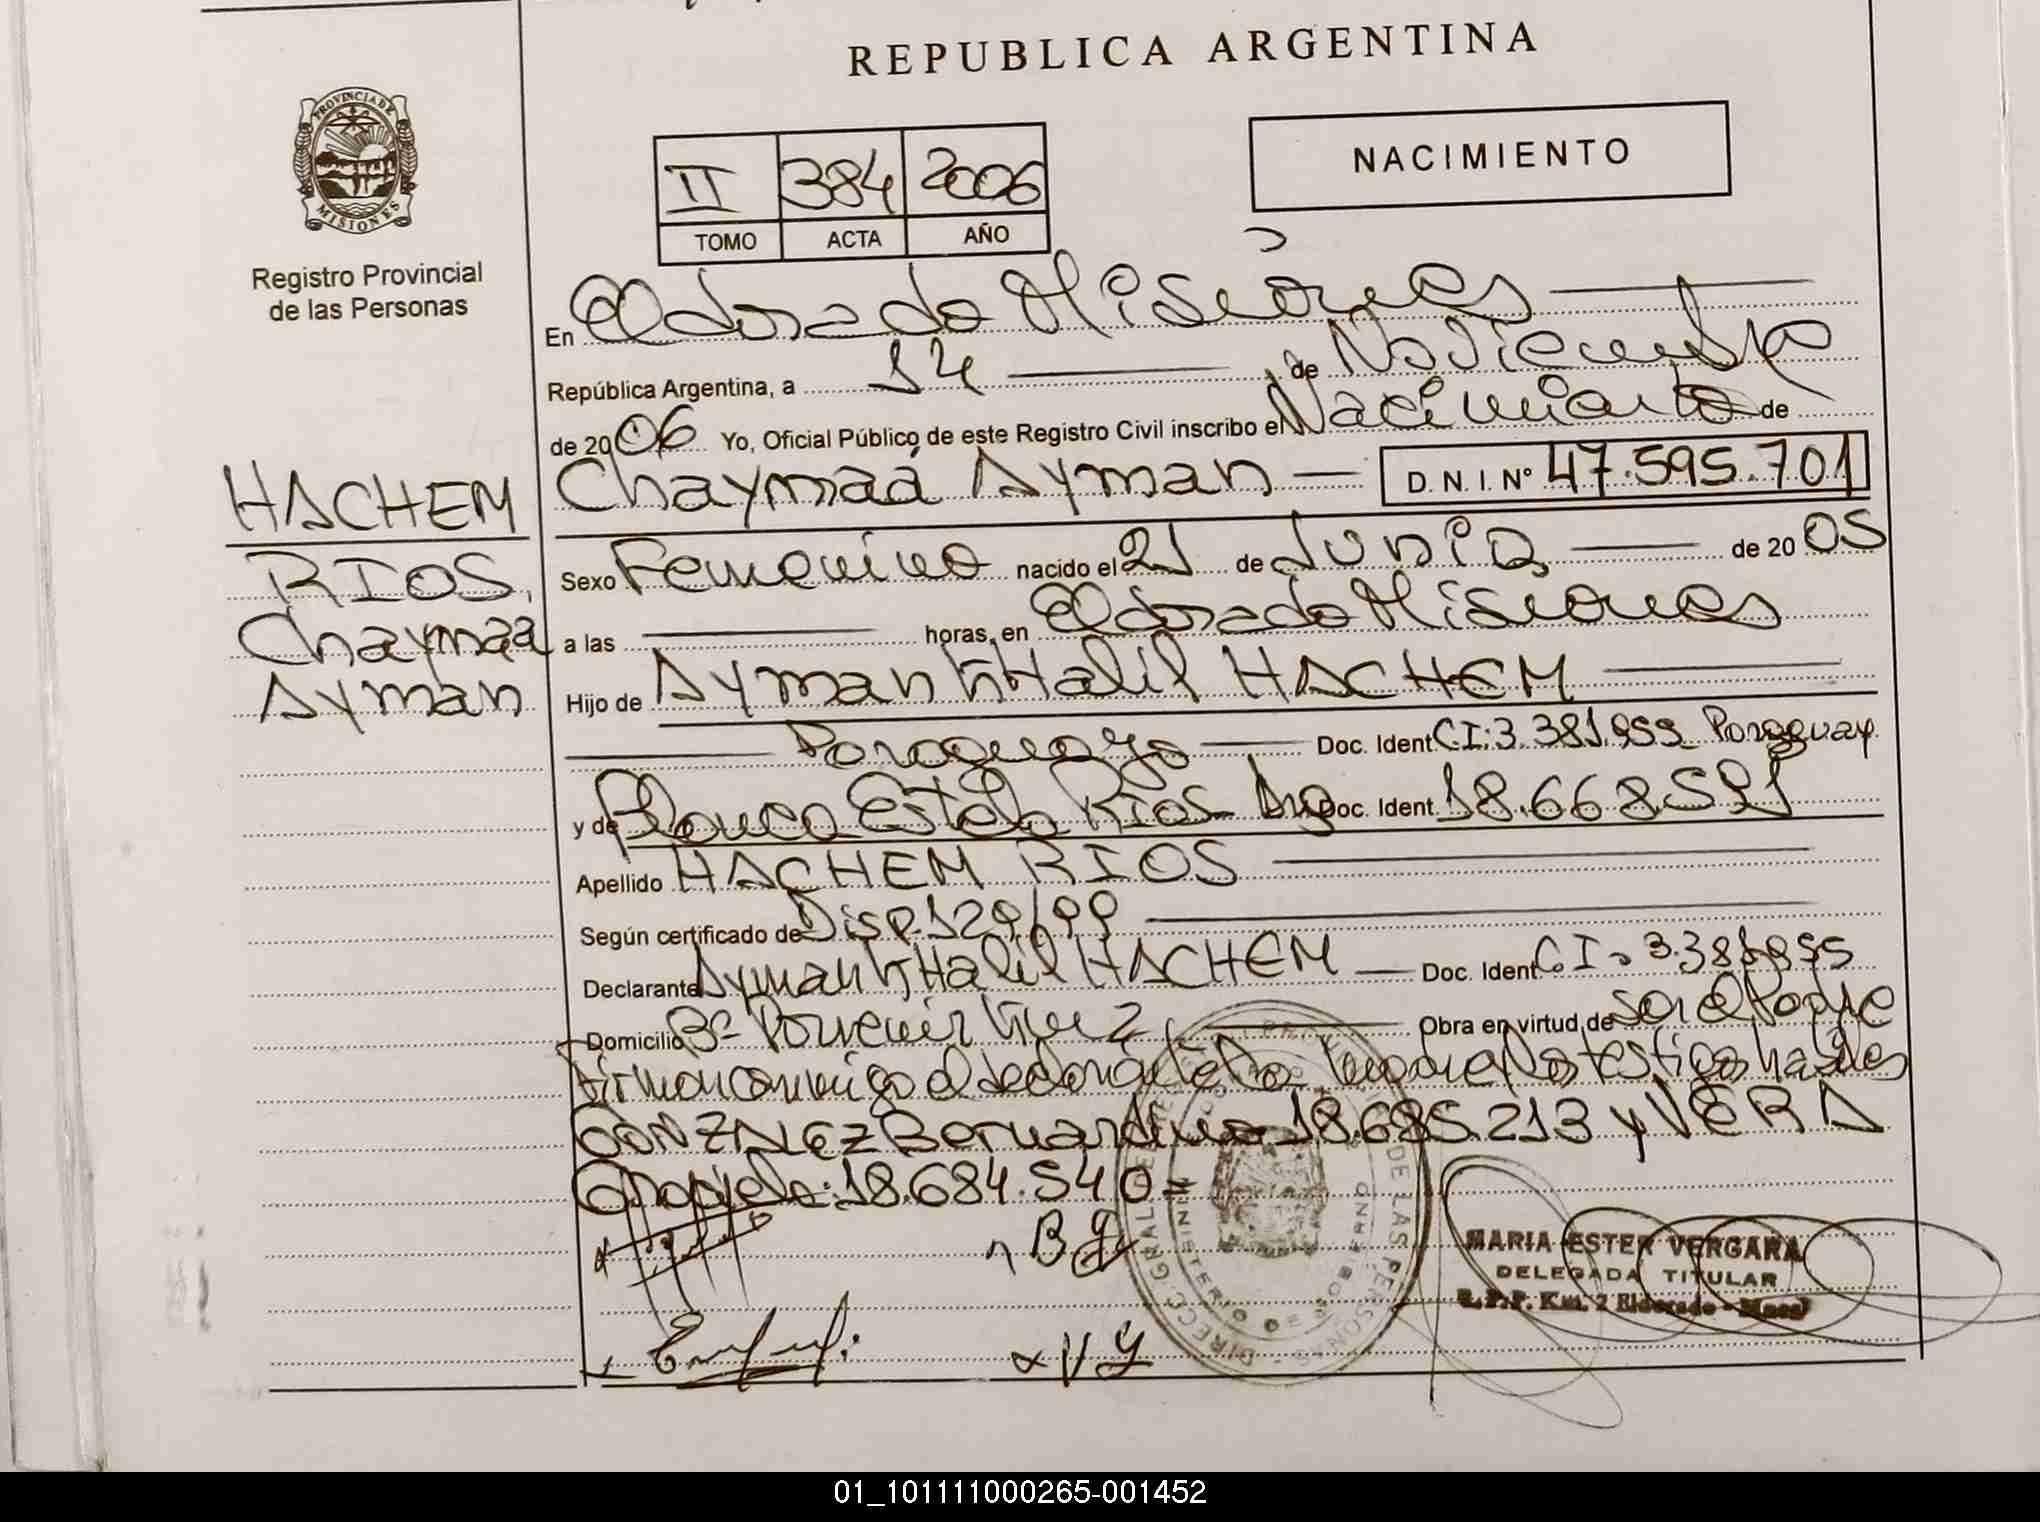 REPUBLICA ARGENTINA
PROVINCIA DE
MISIONES
Registro Provincial
de las Personas
NACIMIENTO
II 384 2006
TOMO ACTA AÑO
En Eldorado Misiones
República Argentina, a 14 de Noviembre
de 2006 Yo, Oficial Público de este Registro Civil inscribo el Nacimiento de
Chaymaá Ayman D.N.I. Nº 47.595.701
HACHEM
RIOS,
Chaymaa
Ayman
Sexo Femenino nacido el 21 de Junio de 2005
a las horas, en Eldorado Misiones
Hijo de Ayman Khalil HACHEM
Paraguayo Doc. Ident. C.I: 3.381.959 Paraguay
y de Blanca Estela Rios Arg Doc. Ident. 18.668.591
Apellido HACHEM RIOS
Según certificado de Disp. 129/99
Declarante Ayman Khalil HACHEM Doc. Ident. C.I.
Domicilio Bº Porvenir Km 2 Obra en virtud de ser el Padre
Firman conmigo el declarante la madre los testigos habiles
GONZALEZ Bernardino 18.685.213 y VERA
18.684.540=
MINISTERIO DE GOBIERNO
DE LAS PERSONAS
MARIA ESTER VERGARA
DELEGADA TITULAR
R.P.P. Km. 2 Eldorado - Mnes
01_101111000265-001452